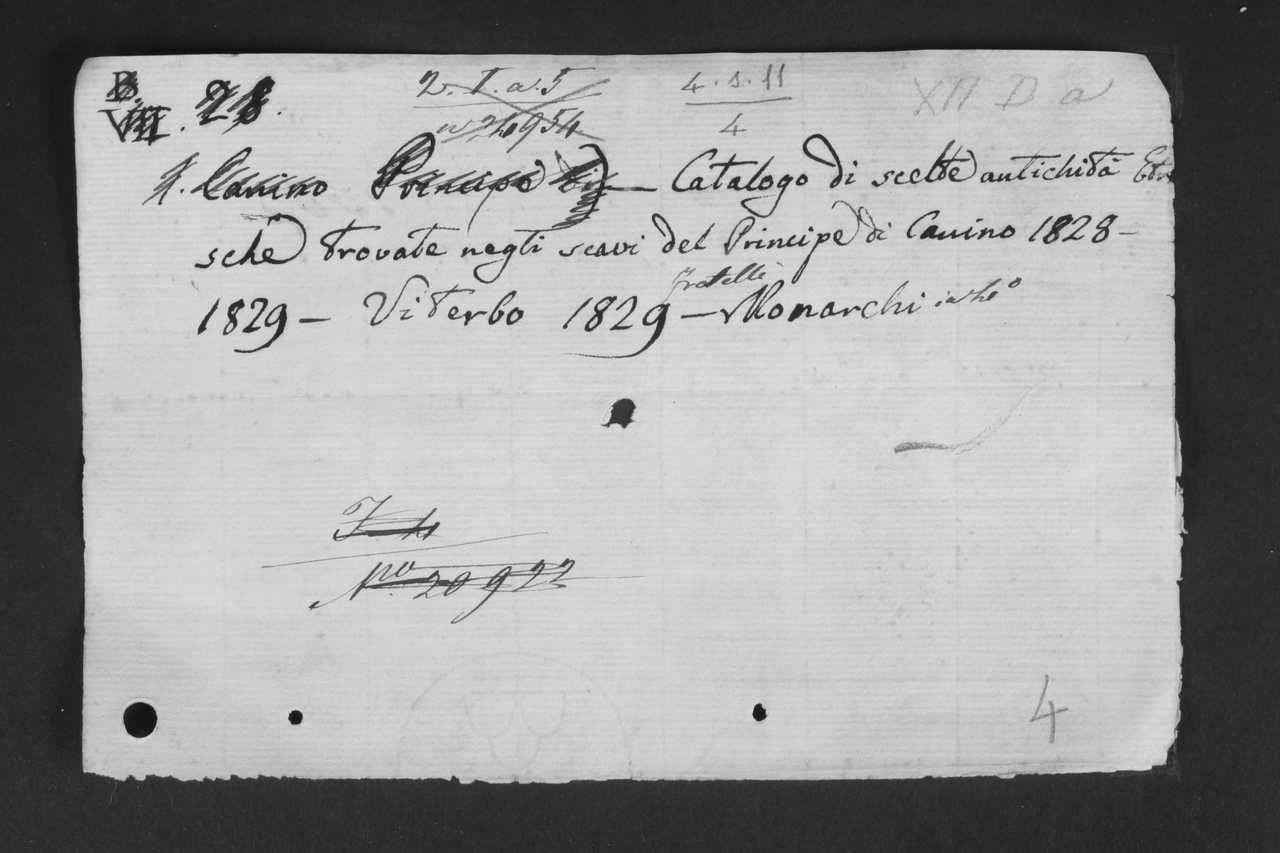 B. 2. I. a. 5 4. s. 11 XII D a
VIII. 28. 4
Canino Principe di — Catalogo di scelte antichità Etru
sche trovate negli scavi del Principe di Canino 1828 –
1829 – Viterbo 1829 – fratelli Monarchi in 4º
Nº 20922
4